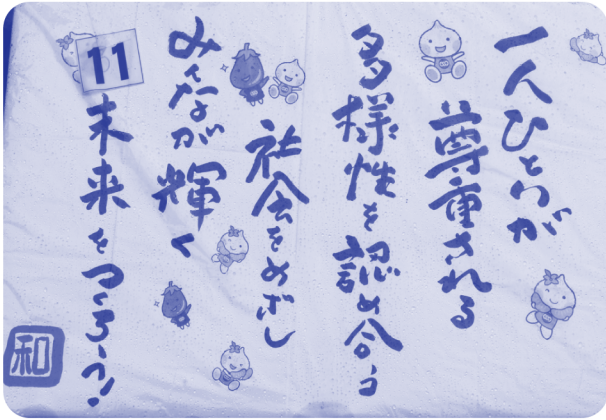 一人ひとりが
尊重される
多様性を認め合う
社会をめざし
みんなが輝く
未来をつくろう!
11
和